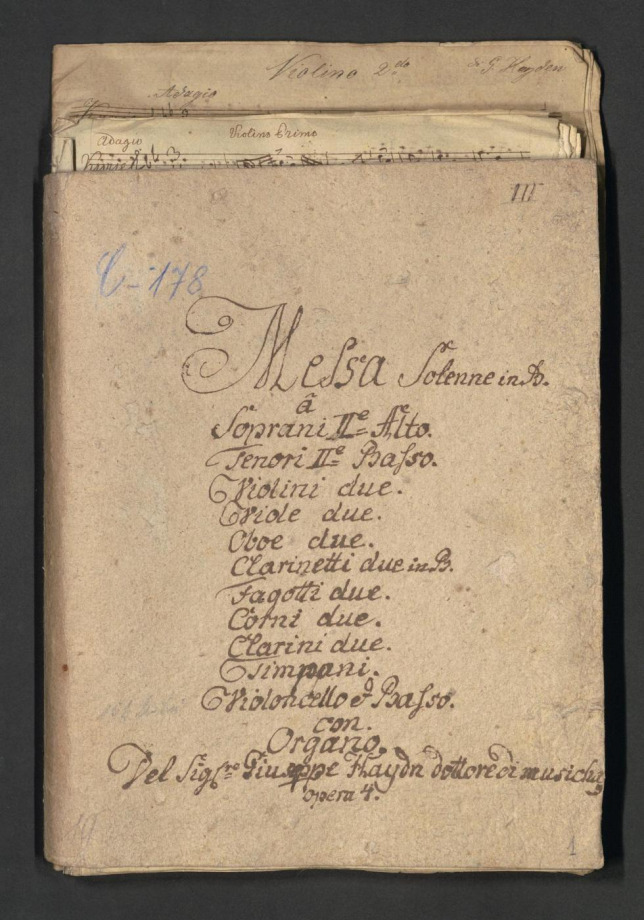 Violino 2do G. Hayden
Adagio
Adagio Violino Primo
III
C-178
Messa Solenne in B.
â
Soprani IIe Alto.
Tenori IIe Basso.
Violini due.
Viole due.
Oboe due.
Clarinetti due in B.
Fagotti due.
Corni due.
Clarini due.
Timpani.
Violoncello é Basso.
con.
Organo.
Del Sigre Giuseppe Haydn dottore di musicha
opera 4.
1